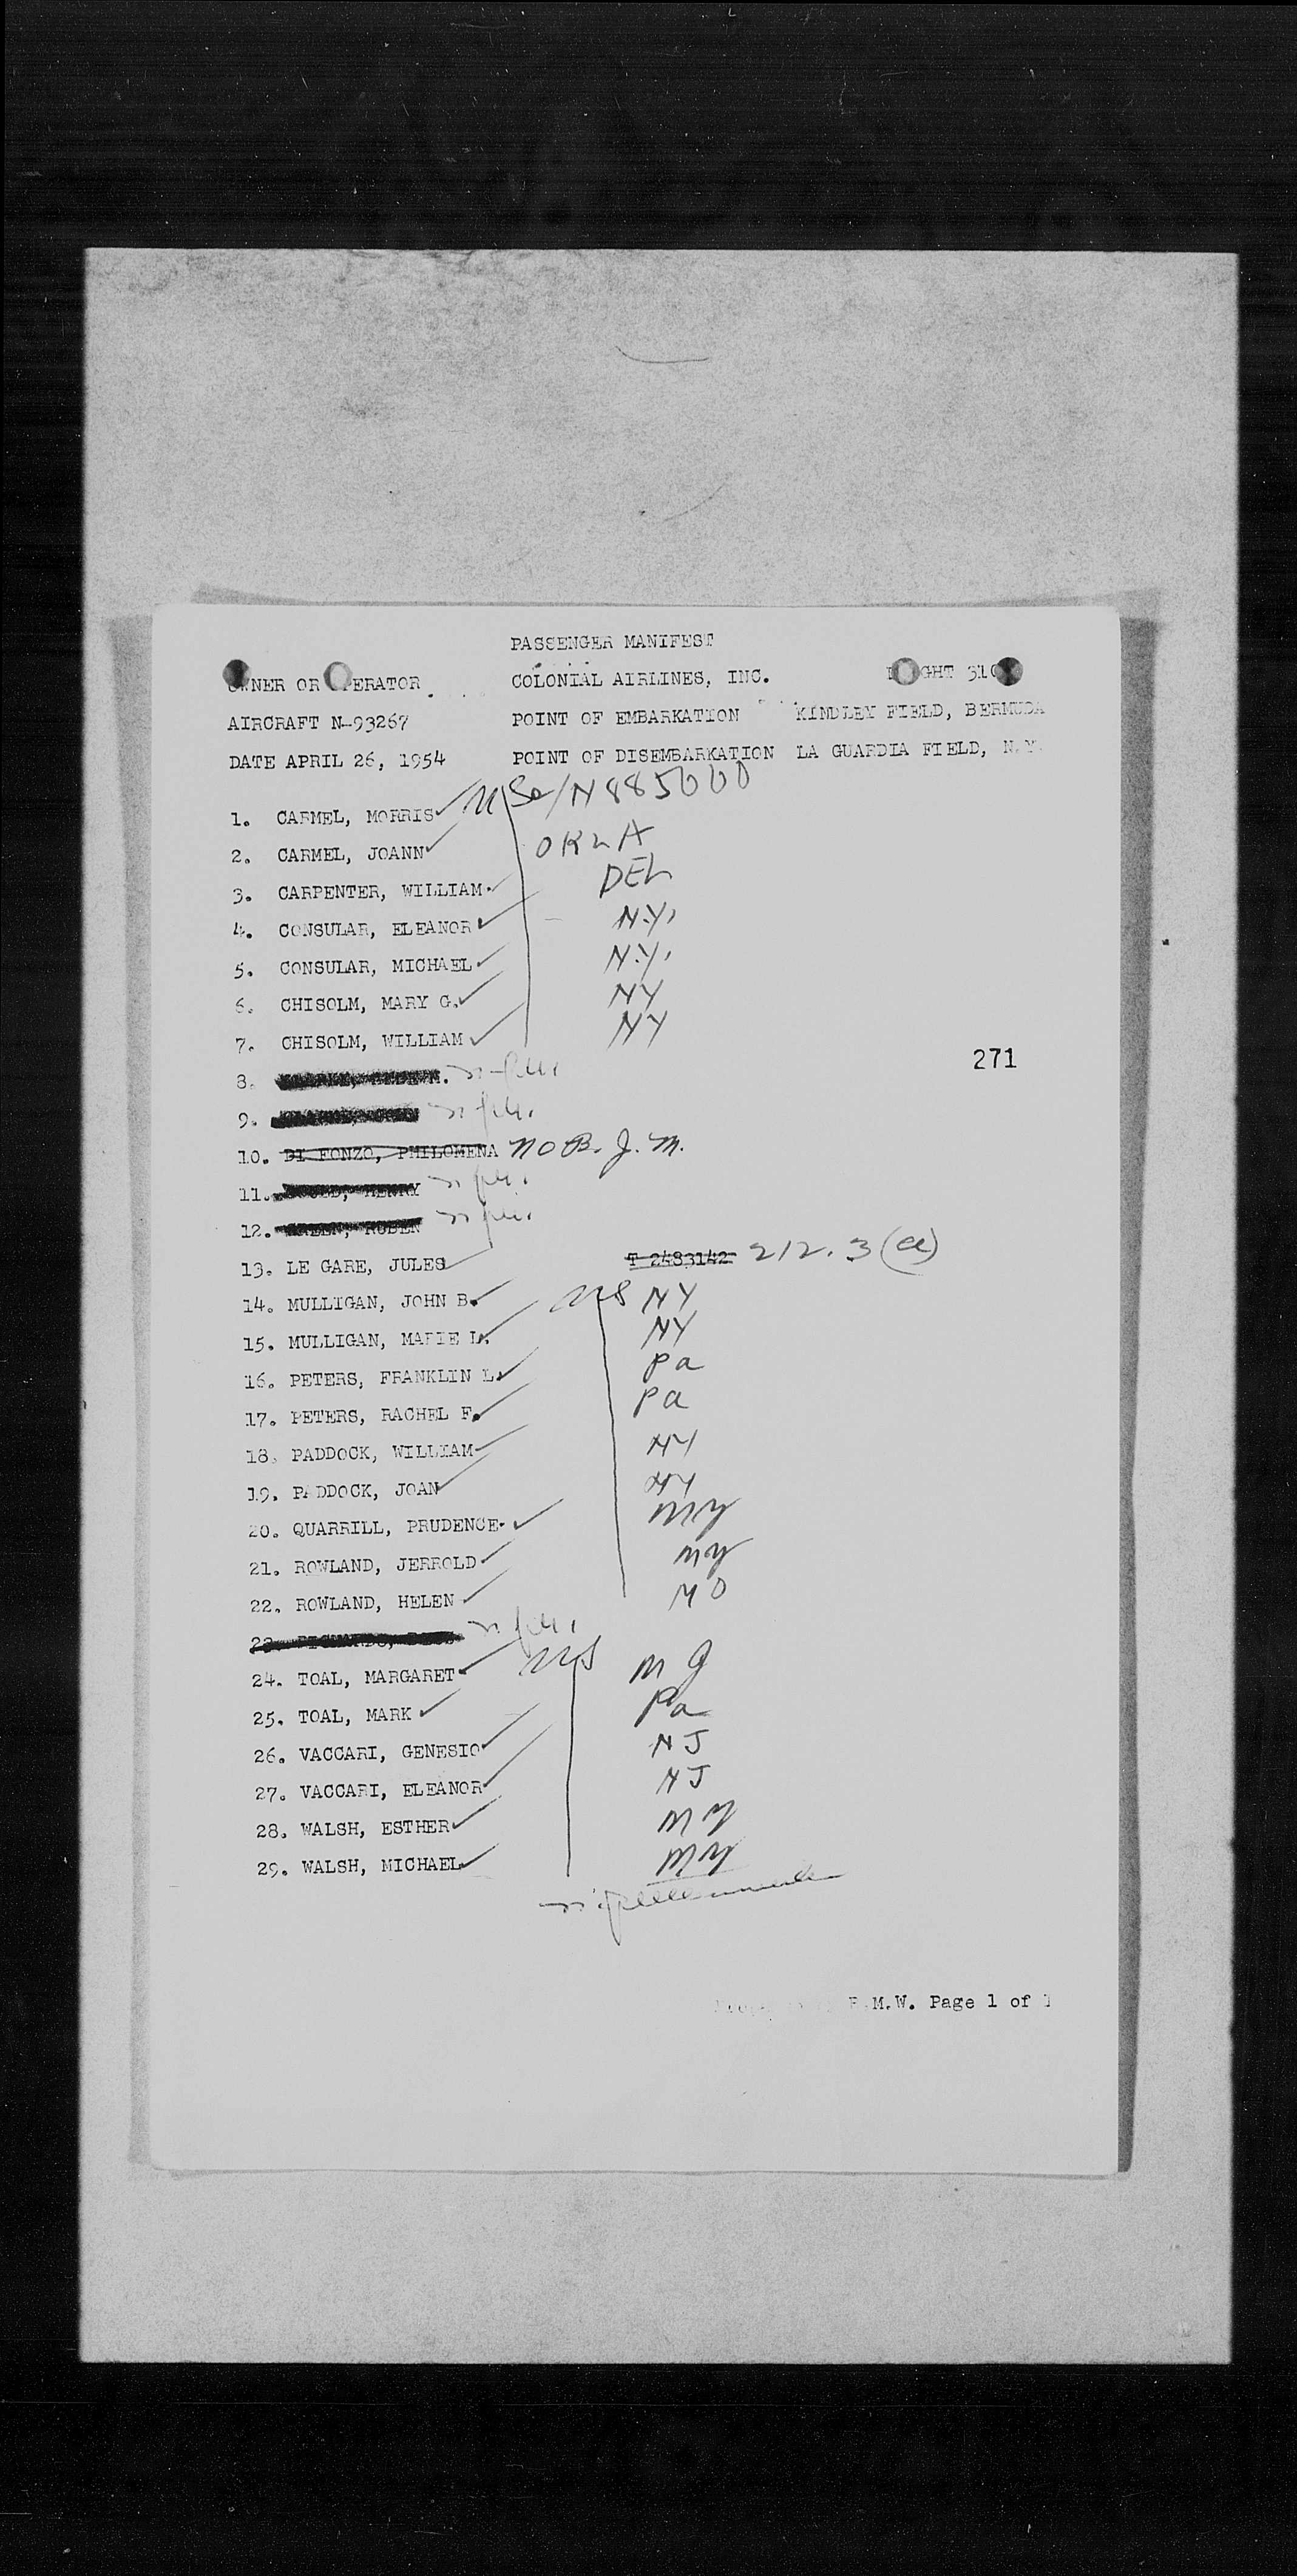 PASSENGER MANIFEST
OWNER OR OPERATOR COLONIAL AIRLINES, INC. FLIGHT 310
AIRCRAFT N-93267 POINT OF EMBARKATION KINDLEY FIELD, BERMUDA
DATE APRIL 26, 1954 POINT OF DISEMBARKATION LA GUARDIA FIELD, N.Y.
1. CARMEL, MORRIS N885000
2. CARMEL, JOANN OKLA
3. CARPENTER, WILLIAM DEL
4. CONSULAR, ELEANOR N.Y.
5. CONSULAR, MICHAEL N.Y.
6. CHISOLM, MARY G. NY
7. CHISOLM, WILLIAM NY
271
8.
9.
10. DI FONZO, PHILOMENA NO B. J. M.
11. HENRY
12. GREEN, RUBEN
13. LE GARE, JULES T 2483142 212.3(a)
14. MULLIGAN, JOHN B. US NY
15. MULLIGAN, MARIE L. NY
16. PETERS, FRANKLIN L. Pa
17. PETERS, RACHEL F. Pa
18. PADDOCK, WILLIAM NY
19. PADDOCK, JOAN NY
20. QUARRILL, PRUDENCE NY
21. ROWLAND, JERROLD NY
22. ROWLAND, HELEN MO
23.
24. TOAL, MARGARET US NJ
25. TOAL, MARK Pa
26. VACCARI, GENESIO NJ
27. VACCARI, ELEANOR NJ
28. WALSH, ESTHER NY
29. WALSH, MICHAEL NY
M.W. Page 1 of 1